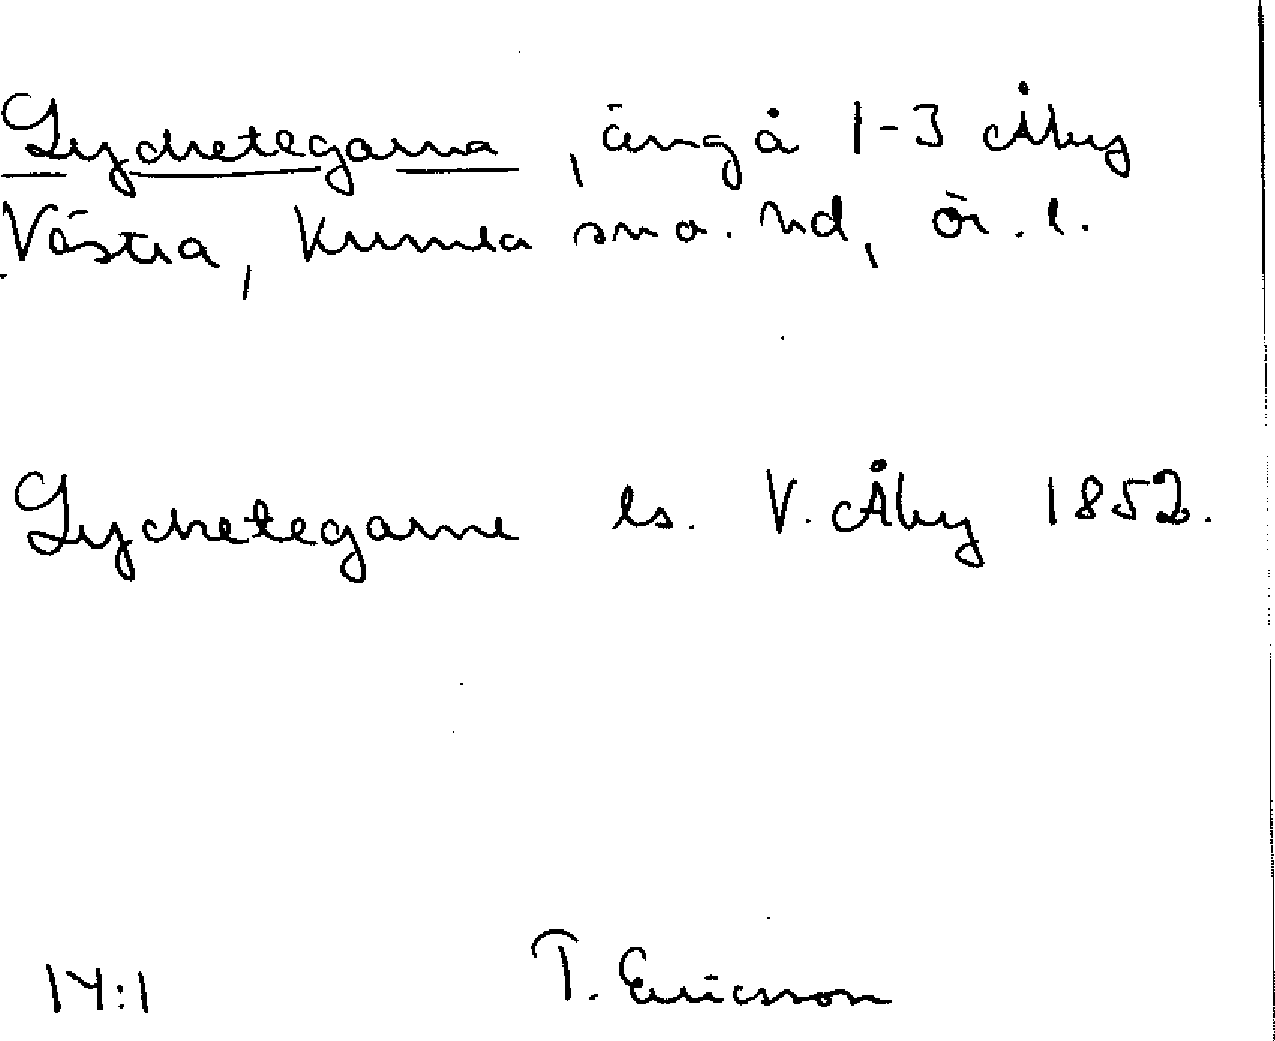 Lyckretegarna, äng å 1-3 Åby
Västra, Kumla sn o. hd, ör. l.
Lyckretegarne ls. V. Åby 1852.
14:1 T. Ericsson